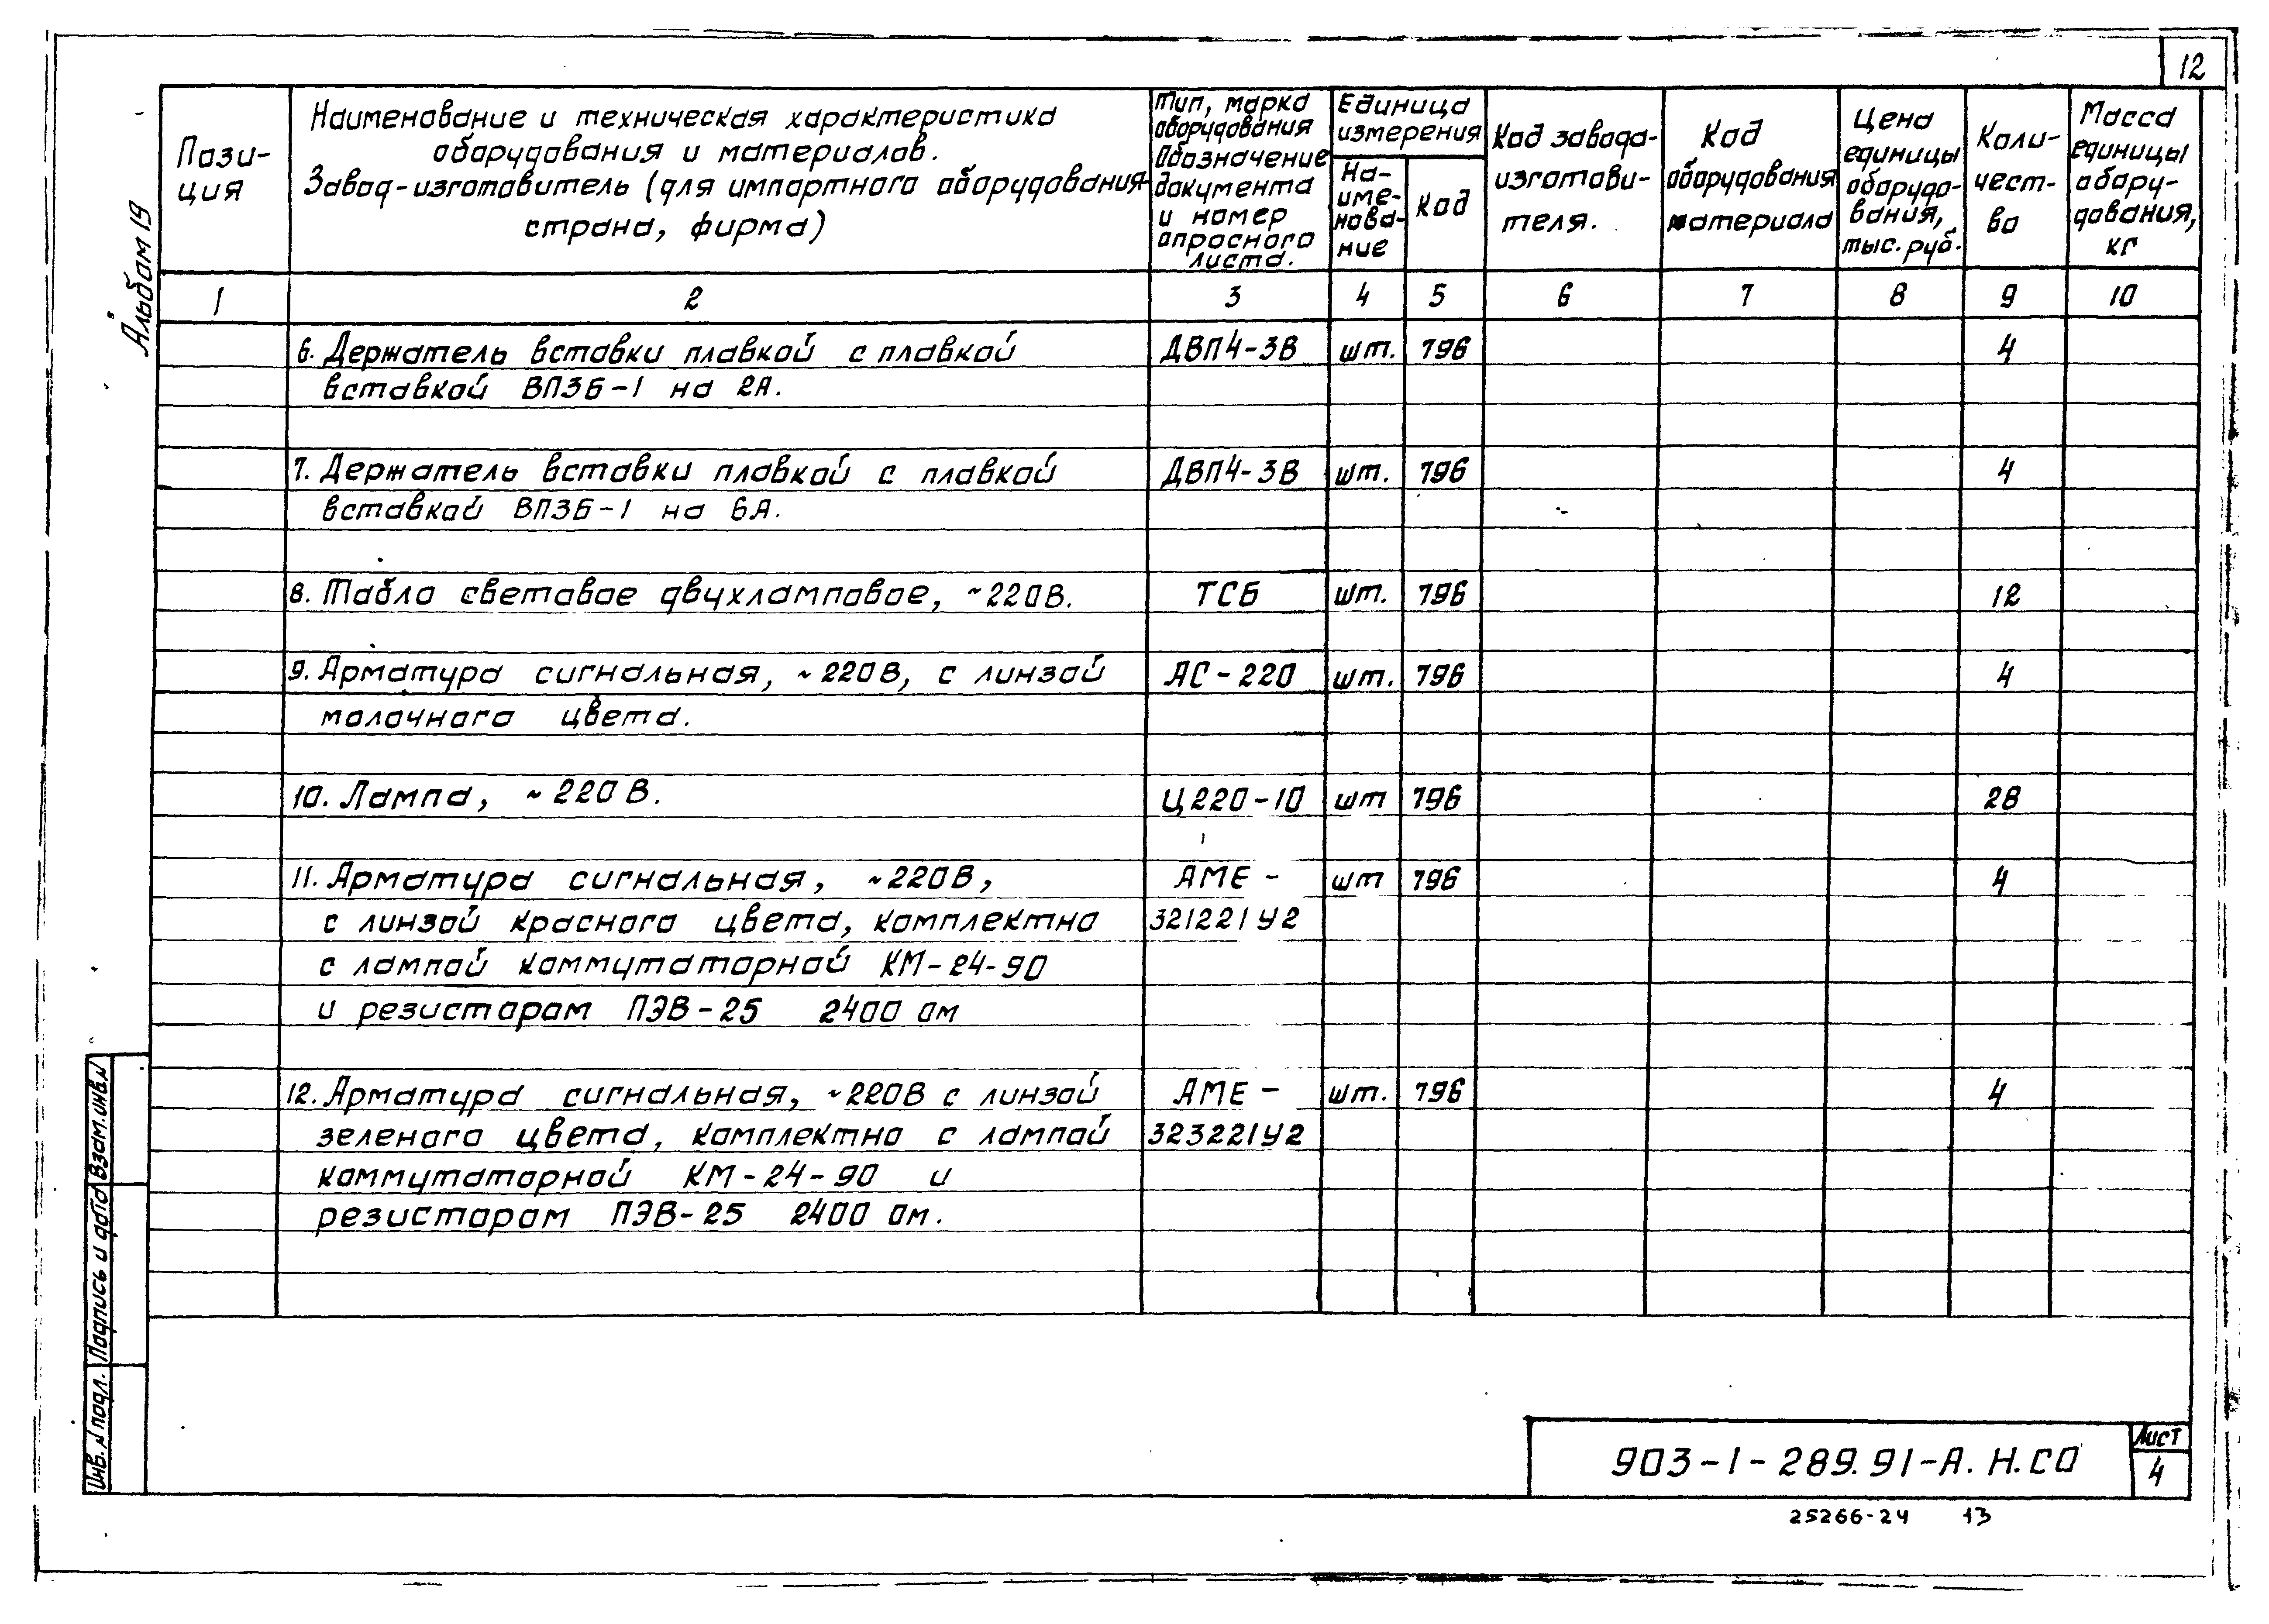 12
Альбом 19
Пози-
ция
Наименование и техническая характеристика
оборудования и материалов.
Завод-изготовитель (для импортного оборудования-
страна, фирма)
Тип, марка
оборудования
Обозначение
документа
и номер
опросного
листа.
Единица
измерения
На-
име-
нова-
ние
Код
Код завода-
изготови-
теля.
Код
оборудования
материала
Цена
единицы
оборудо-
вания,
тыс. руб.
Коли-
чест-
во
Масса
единицы
обору-
дования,
кг
1 2 3 4 5 6 7 8 9 10
6. Держатель вставки плавкой с плавкой ДВП4-3В шт. 796 4
вставкой ВП3Б-1 на 2А.
7. Держатель вставки плавкой с плавкой ДВП4-3В шт. 796 4
вставкой ВП3Б-1 на 6А.
8. Табло световое двухламповое, ~220В. ТСБ шт. 796 12
9. Арматура сигнальная, ~220В, с линзой АС-220 шт. 796 4
молочного цвета.
10. Лампа, ~220В. Ц220-10 шт 796 28
11. Арматура сигнальная, ~220В, АМЕ- шт 796 4
с линзой красного цвета, комплектно 321221У2
с лампой коммутаторной КМ-24-90
и резистором ПЭВ-25 2400 ом
12. Арматура сигнальная, ~220В с линзой АМЕ- шт. 796 4
зеленого цвета, комплектно с лампой 323221У2
коммутаторной КМ-24-90 и
резистором ПЭВ-25 2400 ом.
Взам. инв. N
Подпись и дата
Инв. N подл.
903-1-289.91-А.Н.СО
Лист
4
25266-24 13